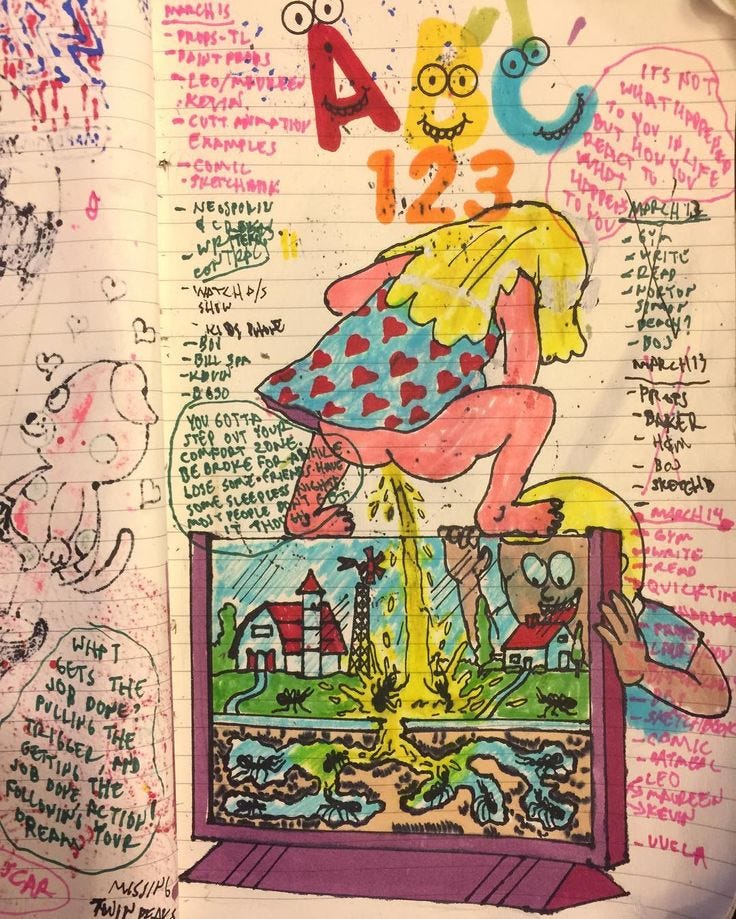 MARCH 15
- PROPS-TL
- PAINT PROPS
- LEO/MAUREEN
• KEVIN
- CUTT ANIMATION
EXAMPLES
- COMIC
• SKETCHBOOK
- NEOSPORIN
WRITERS
CONTROL
- WATCH D/S
SHOW
- KIDS PHONE
- BOJ
- BILL SPA
- KEVIN
ABC
123
IT'S NOT
WHAT HAPPENED
TO YOU IN LIFE
BUT HOW YOU
REACT TO
WHAT
HAPPENS
TO YOU
MARCH 12
- GYM
- WRITE
- READ
- NORTON
SIMON
- BEACH?
- BOJ
MARCH 13
- PROPS
- BAKER
- H&M
- BOJ
- SKETCHB
- MARCH 14
- GYM
- WRITE
- READ
- QUICKTIME
- PROPS
- BOJ
- SKETCHBOOK
- COMIC
- OATMEAL
- LEO
MAUREEN
KEVIN
- VUELA
YOU GOTTA
STEP OUT YOUR
COMFORT ZONE,
BE BROKE FOR AWHILE
LOSE SOME FRIENDS. HAVE
SOME SLEEPLESS NIGHTS.
MOST PEOPLE DON'T GET
IT THOUGH
WHAT
GETS THE
JOB DONE?
PULLING THE
TRIGGER AND
GETTING THE
JOB DONE ACTION!
FOLLOWING YOUR
DREAM
SCAR
MISSING
TWIN PEAKS